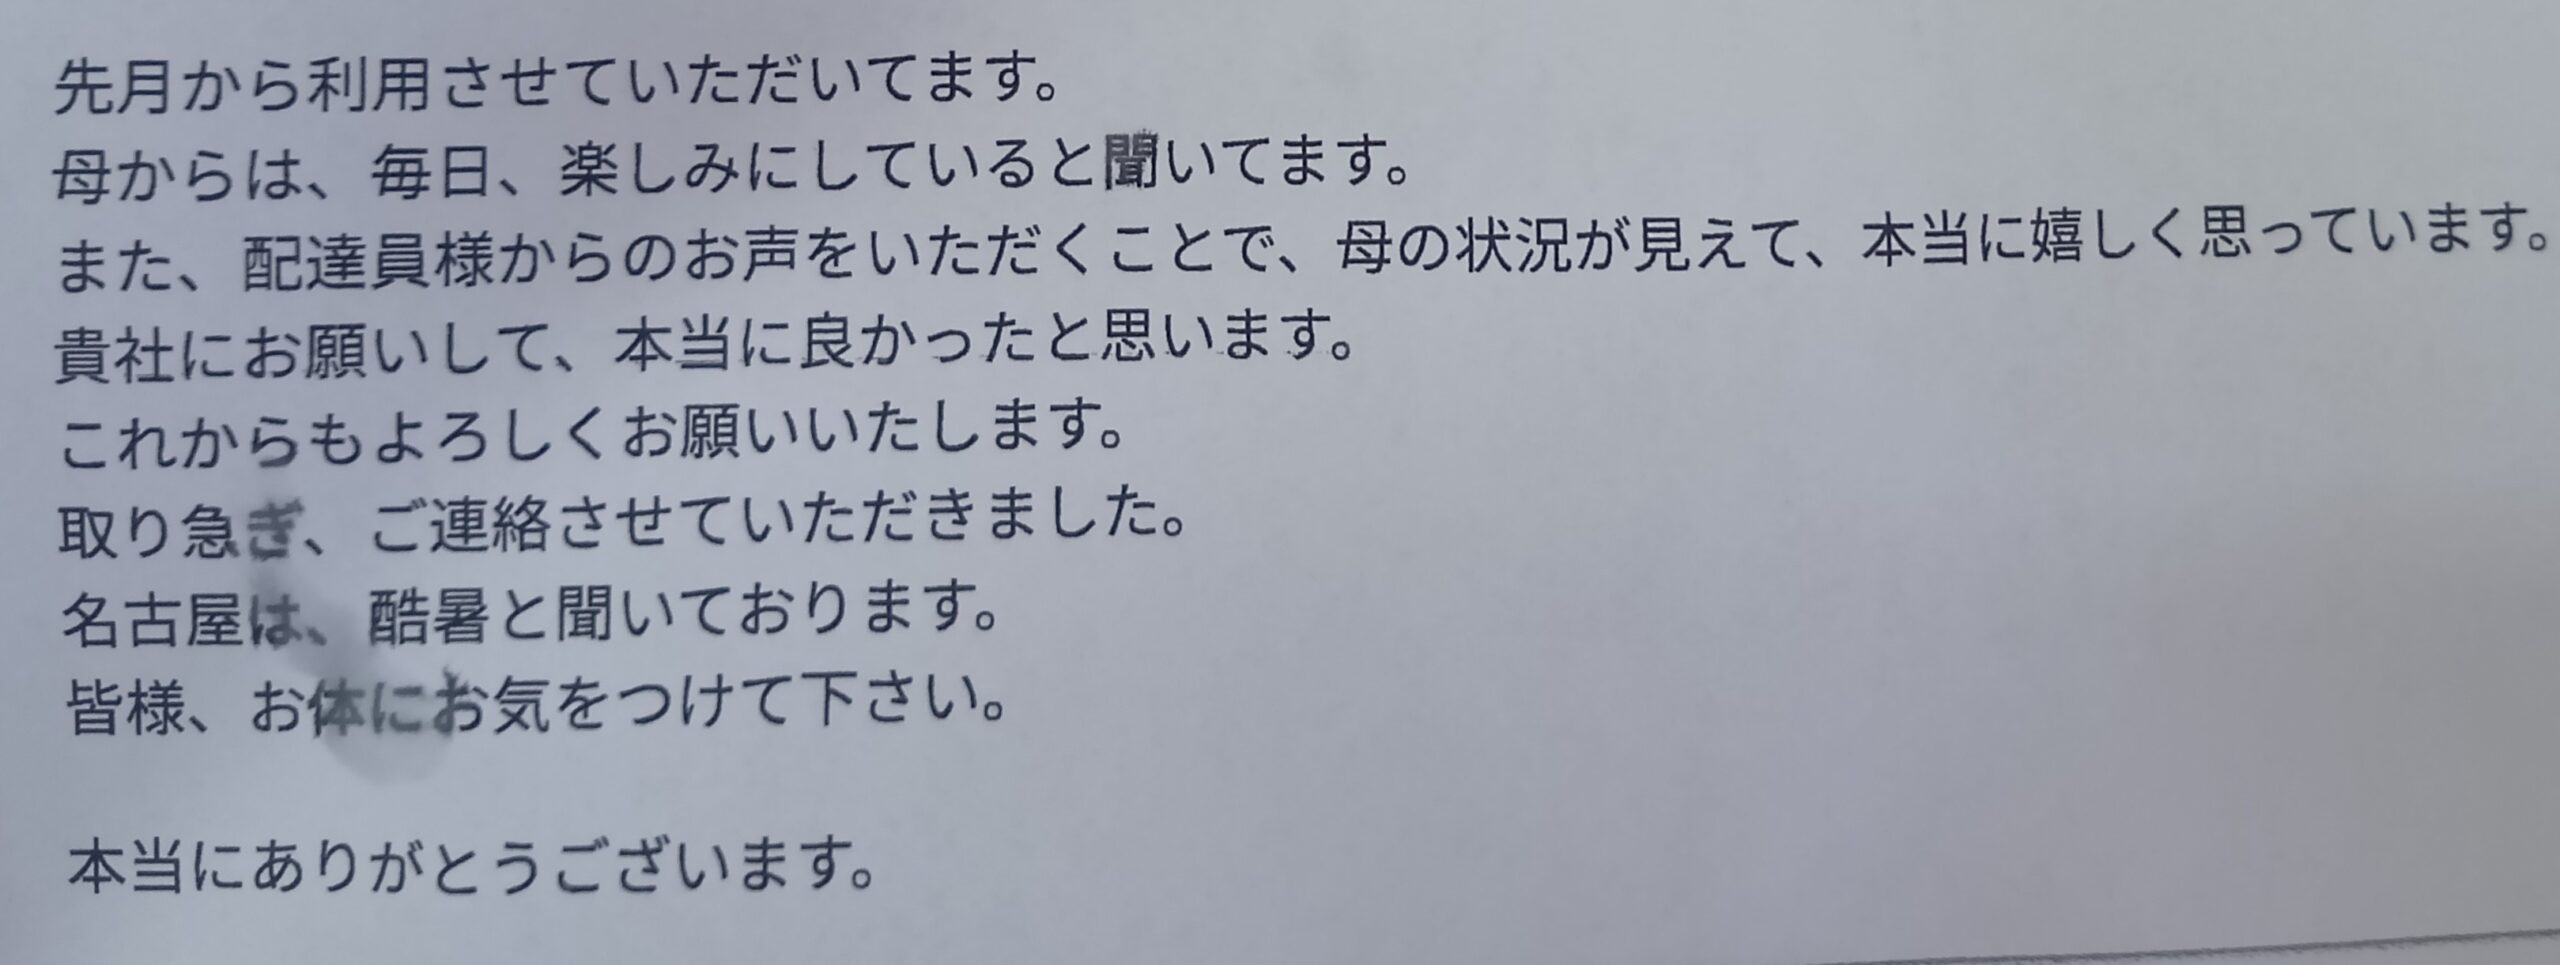 先月から利用させていただいてます。
母からは、毎日、楽しみにしていると聞いてます。
また、配達員様からのお声をいただくことで、母の状況が見えて、本当に嬉しく思っています。
貴社にお願いして、本当に良かったと思います。
これからもよろしくお願いいたします。
取り急ぎ、ご連絡させていただきました。
名古屋は、酷暑と聞いております。
皆様、お体にお気をつけて下さい。
本当にありがとうございます。